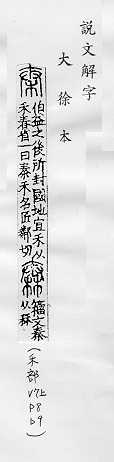 說文解字
大徐本
秦
伯益之後所封國地宜禾从
禾舂省一曰秦禾名匠鄰切
籀文秦
从秝
(禾部
V7上
P8
b9)